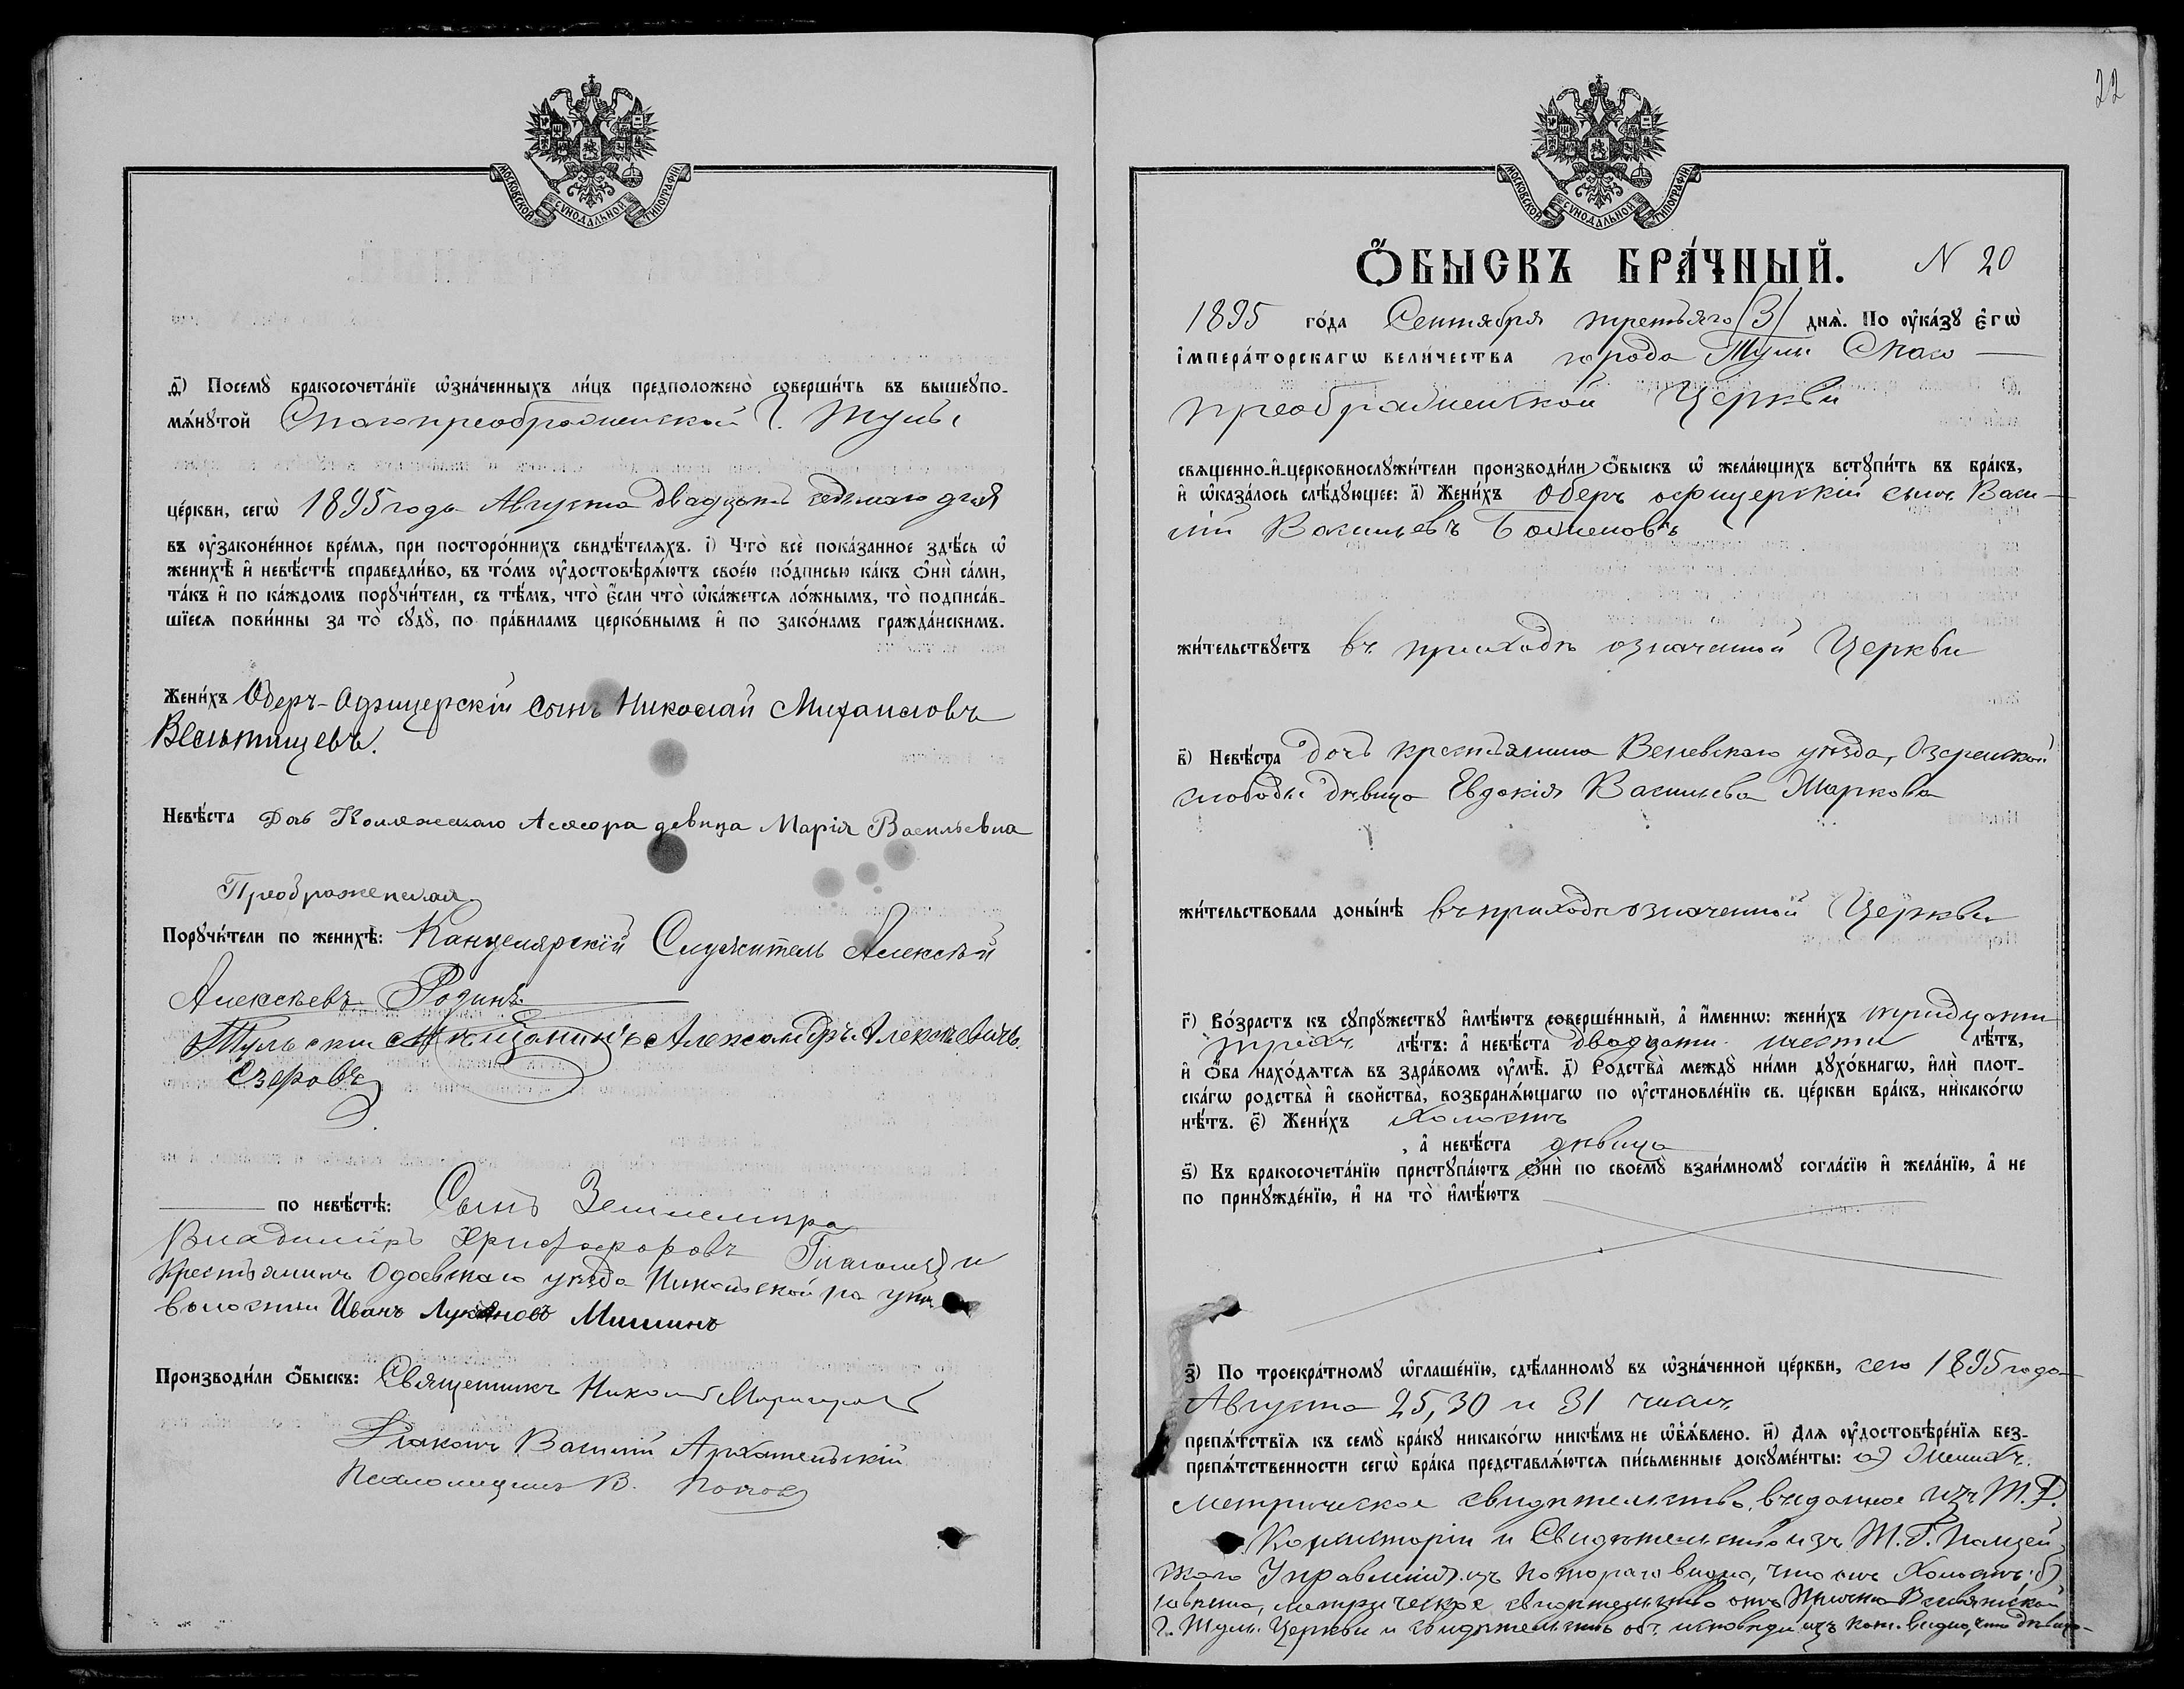 МОСКОВСКОЙ СѴНОДАЛЬНОЙ ТИПОГРАФІИ
д҃) Посемꙋ̀ бракосочета́нїе ѡ҆зна́ченныхъ ли́цъ предположено̀ соверши́ть въ вышеꙋпо-
мѧ́нꙋтой Спасопреображенской г. Тулы
це́ркви, сегѡ̀ 1895 года Августа двадцать седьмаго дня
въ ᲂу҆законе́нное вре́мѧ, при посторо́ннихъ свидѣ́телѧхъ. і҃) Что̀ всѐ пока́занное здѣ́сь ѡ҆
женихѣ̀ и҆ невѣ́стѣ справедли́во, въ то́мъ ᲂу҆достовѣрѧ́ютъ свое́ю по́дписью ка́къ ѻ҆нѝ са́ми,
та́къ и҆ по ка́ждомъ порꙋчи́тели, съ тѣ́мъ, что̀ є҆́сли что̀ ѡ҆ка́жетсѧ ло́жнымъ, то̀ подписа́в-
шїесѧ пови́нны за то̀ сꙋдꙋ̀, по пра́виламъ церко́внымъ и҆ по зако́намъ гражда́нскимъ.
Жени́хъ Оберъ-Офицерскій сынъ Николай Михаиловъ
Вельтищевъ.
Невѣ́ста Дочь Коллежскаго Асесора девица Марія Васильевна
Преображенская
Порꙋчи́тели по женихѣ̀: Канцелярскій Служитель Алексѣй
Алексѣевъ Родинъ
Тульскій Мѣщанинъ Александръ Алексѣевичъ
Езеровъ
по невѣ́стѣ: Сынъ Землемѣра
Владиміръ Христофоровъ и
Крестьянинъ Одоевскаго уѣзда Никольской
волости Иванъ Лукьяновъ Мишинъ
Производи́ли ѻ҆́быскъ: Священникъ Николай
Діаконъ Василій Архангельскій
Псаломщикъ В. Попов
22
МОСКОВСКОЙ СѴНОДАЛЬНОЙ ТИПОГРАФІИ
Ѻ҆́БЫСКЪ БРА́ЧНЫЙ. N 20
1895 го́да Сентября третьяго /3/ днѧ̀. По ᲂу҆ка́зꙋ є҆гѡ̀
і҆мпера́торскагѡ вели́чества города Тулы Спасо —
преображенской Церкви
свѧщенно-и҆-церковнослꙋжи́тели производи́ли ѻ҆́быскъ ѡ҆ жела́ющихъ встꙋпи́ть въ бра́къ,
и҆ ѡ҆каза́лось слѣ́дꙋющее: а҃) Жени́хъ Оберъ офицерскій сынъ Васи-
лій Васильевъ Баженовъ
жи́тельствꙋетъ въ приходѣ означенной Церкви
в҃) Невѣ́ста дочь крестьянина Веневскаго уѣзда, Озеренской
слободы дѣвица Евдокія Васильева Маркова
жи́тельствовала доны́нѣ въ приходѣ означенной Церкви
г҃) Во́зрастъ къ сꙋпрꙋ́жествꙋ и҆мѣ́ютъ соверше́нный, а҆ и҆́менно: жени́хъ тридцати
трехъ лѣ́тъ: а҆ невѣ́ста двадцати шести лѣ́тъ,
и҆ ѻ҆́ба нахо́дѧтсѧ въ здра́вомъ ᲂу҆мѣ̀. д҃) Родства̀ междꙋ̀ ни́ми дꙋхо́внагѡ, и҆лѝ плот-
ска́гѡ родства̀ и҆ свойства̀, возбранѧ́ющагѡ по ᲂу҆становле́нїю св. це́ркви бра́къ, никако́гѡ
нѣ́тъ. є҃) Жени́хъ Холостъ
, а҆ невѣ́ста дѣвица
ѕ҃) Къ бракосочета́нїю пристꙋпа́ютъ ѻ҆нѝ по своемꙋ̀ взаи́мномꙋ согла́сїю и҆ жела́нїю, а҆ не
по принꙋжде́нїю, и҆ на то̀ и҆мѣ́ютъ
з҃) По троекра́тномꙋ ѡ҆глаше́нїю, сдѣ́ланномꙋ въ ѡ҆зна́ченной це́ркви, сего 1895 года
Августа 25, 30 и 31 чиселъ
препѧ́тствїѧ къ семꙋ̀ бра́кꙋ никако́гѡ никѣ́мъ не ѡ҆б̾ѧ́влено. и҃) Длѧ ᲂу҆достовѣре́нїѧ без-
препѧ́тственности сегѡ̀ бра́ка представлѧ́ютсѧ пи́сьменные докꙋме́нты: а) Женихъ
метрическое свидѣтельство, выданное изъ Т. Д.
Консисторіи и Свидѣтельство изъ Т. Г. Полицей-
скаго Управленія изъ котораго видно, что онъ Холостъ б)
невѣста, метрическое свидѣтельство отъ Причта
г. Тулы Церкви и свидѣтельство объ исповѣди изъ кот. видно, что дѣвица